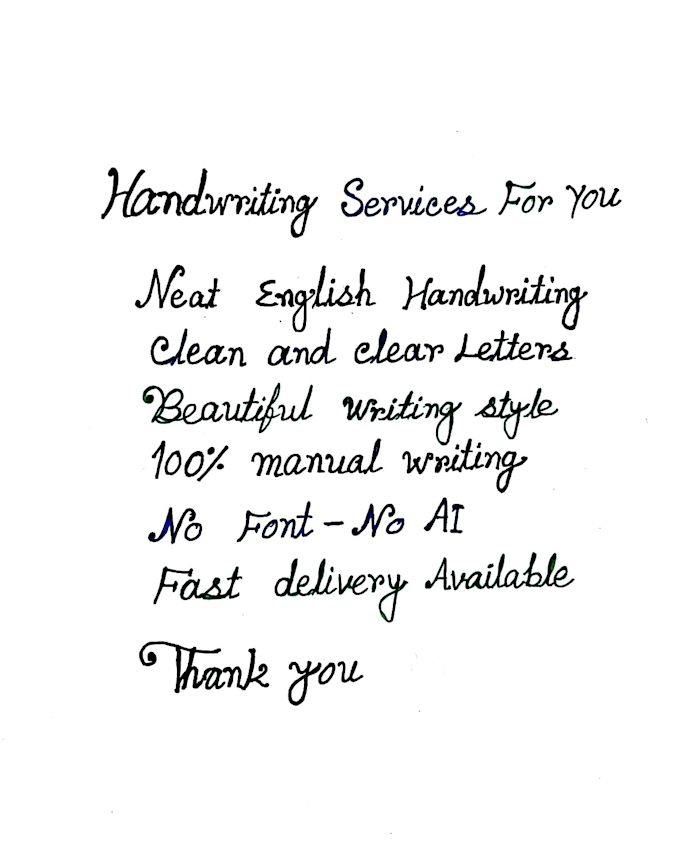 Handwriting Services For You
Neat English Handwriting
Clean and clear Letters
Beautiful writing style
100% manual writing
No Font - No AI
Fast delivery Available
Thank you